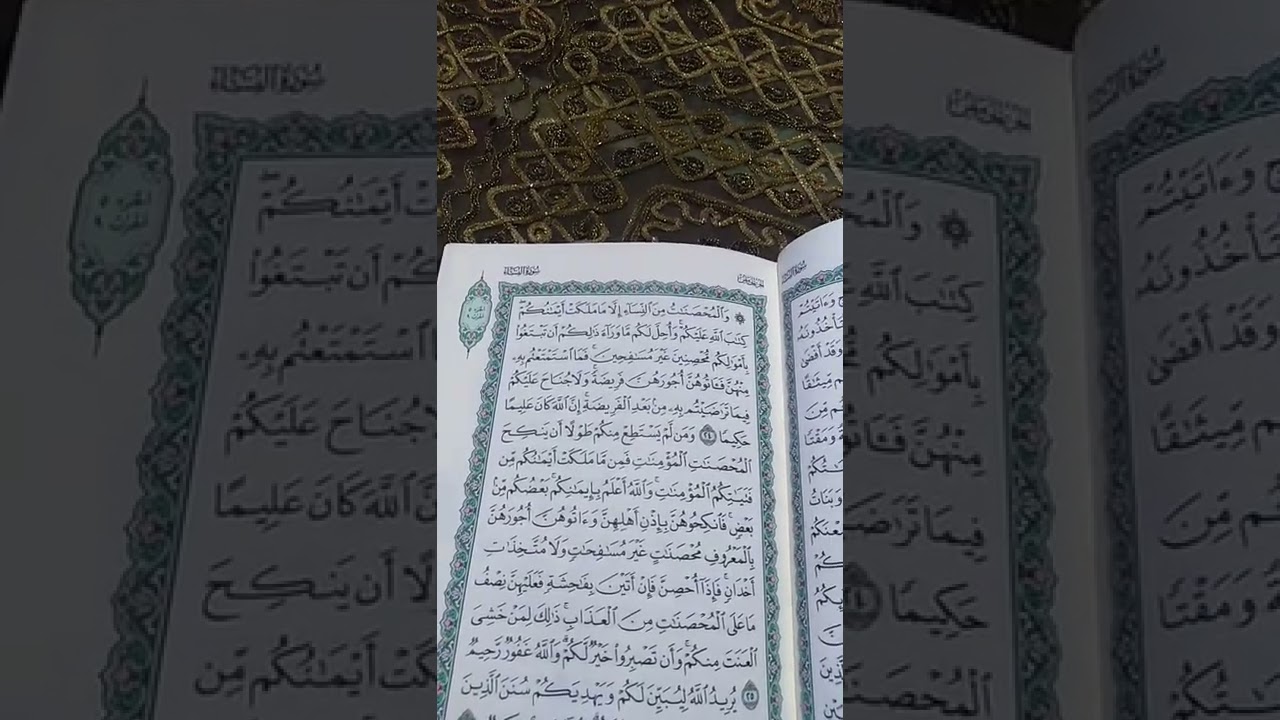 سُورَةُ النِّسَاءِ
الجُزْءُ الخَامِسُ
۞ وَٱلْمُحْصَنَٰتُ مِنَ ٱلنِّسَآءِ إِلَّا مَا مَلَكَتْ أَيْمَٰنُكُمْ ۖ
كِتَٰبَ ٱللَّهِ عَلَيْكُمْ ۚ وَأُحِلَّ لَكُم مَّا وَرَآءَ ذَٰلِكُمْ أَن تَبْتَغُوا۟
بِأَمْوَٰلِكُم مُّحْصِنِينَ غَيْرَ مُسَٰفِحِينَ ۚ فَمَا ٱسْتَمْتَعْتُم بِهِۦ
مِنْهُنَّ فَـَٔاتُوهُنَّ أُجُورَهُنَّ فَرِيضَةً ۚ وَلَا جُنَاحَ عَلَيْكُمْ
فِيمَا تَرَٰضَيْتُم بِهِۦ مِنۢ بَعْدِ ٱلْفَرِيضَةِ ۚ إِنَّ ٱللَّهَ كَانَ عَلِيمًا
حَكِيمًا ٢٤ وَمَن لَّمْ يَسْتَطِعْ مِنكُمْ طَوْلًا أَن يَنكِحَ
ٱلْمُحْصَنَٰتِ ٱلْمُؤْمِنَٰتِ فَمِن مَّا مَلَكَتْ أَيْمَٰنُكُم مِّن
فَتَيَٰتِكُمُ ٱلْمُؤْمِنَٰتِ ۚ وَٱللَّهُ أَعْلَمُ بِإِيمَٰنِكُم ۚ بَعْضُكُم مِّنۢ
بَعْضٍ ۚ فَٱنكِحُوهُنَّ بِإِذْنِ أَهْلِهِنَّ وَءَاتُوهُنَّ أُجُورَهُنَّ
بِٱلْمَعْرُوفِ مُحْصَنَٰتٍ غَيْرَ مُسَٰفِحَٰتٍ وَلَا مُتَّخِذَٰتِ
أَخْدَانٍ ۚ فَإِذَآ أُحْصِنَّ فَإِنْ أَتَيْنَ بِفَٰحِشَةٍ فَعَلَيْهِنَّ نِصْفُ
مَا عَلَى ٱلْمُحْصَنَٰتِ مِنَ ٱلْعَذَابِ ۚ ذَٰلِكَ لِمَنْ خَشِىَ
ٱلْعَنَتَ مِنكُمْ ۚ وَأَن تَصْبِرُوا۟ خَيْرٌ لَّكُمْ ۗ وَٱللَّهُ غَفُورٌ رَّحِيمٌ
٢٥ يُرِيدُ ٱللَّهُ لِيُبَيِّنَ لَكُمْ وَيَهْدِيَكُمْ سُنَنَ ٱلَّذِينَ